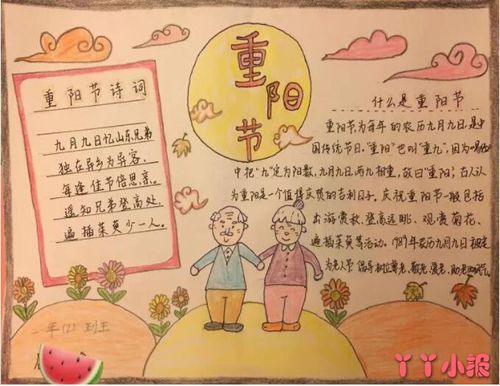 重阳节
重阳节诗词
九月九日忆山东兄弟
独在异乡为异客，
每逢佳节倍思亲。
遥知兄弟登高处，
遍插茱萸少一人。
什么是重阳节
重阳节为每年的农历九月九日，是中
国传统节日。“重阳”也叫“重九”，因为
中把“九”定为阳数，九月九日，两九相重，故曰“重阳”；古人认
为重阳是一个值得庆贺的吉利日子。庆祝重阳节一般包括
出游赏秋、登高远眺、观赏菊花、
遍插茱萸等活动。农历九月九日
为老人节，倡导树立尊老、敬老、爱老、助老的风气。
年(2)班王
丫丫小报